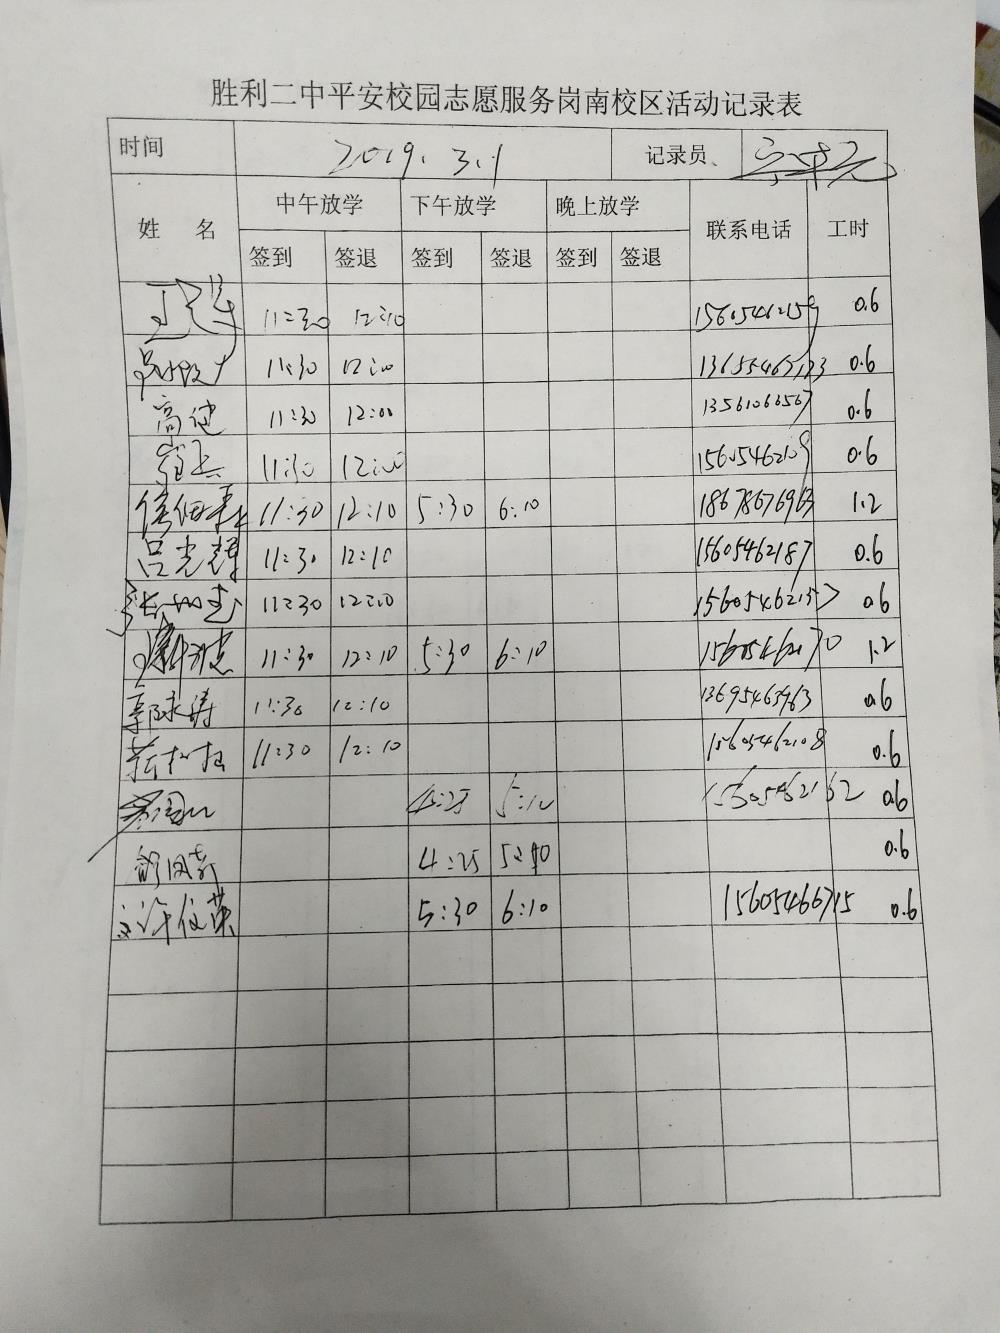 胜利二中平安校园志愿服务岗南校区活动记录表
时间 2019.3.1 记录员
姓 名 中午放学 下午放学 晚上放学 联系电话 工时
签到 签退 签到 签退 签到 签退
11:30 12:10 15605462159 0.6
11:30 12:00 0.6
高健 11:30 12:00 13561066567 0.6
11:30 12:00 15605462109 0.6
11:30 12:10 5:30 6:10 18678676963 1.2
吕光辉 11:30 12:10 15605462187 0.6
11:30 12:10 15605462157 0.6
11:30 12:10 5:30 6:10 15605462170 1.2
郭永涛 11:30 12:10 13695465963 0.6
11:30 12:10 15605462108 0.6
4:25 5:10 15605462162 0.6
4:25 5:10 0.6
5:30 6:10 15605466715 0.6